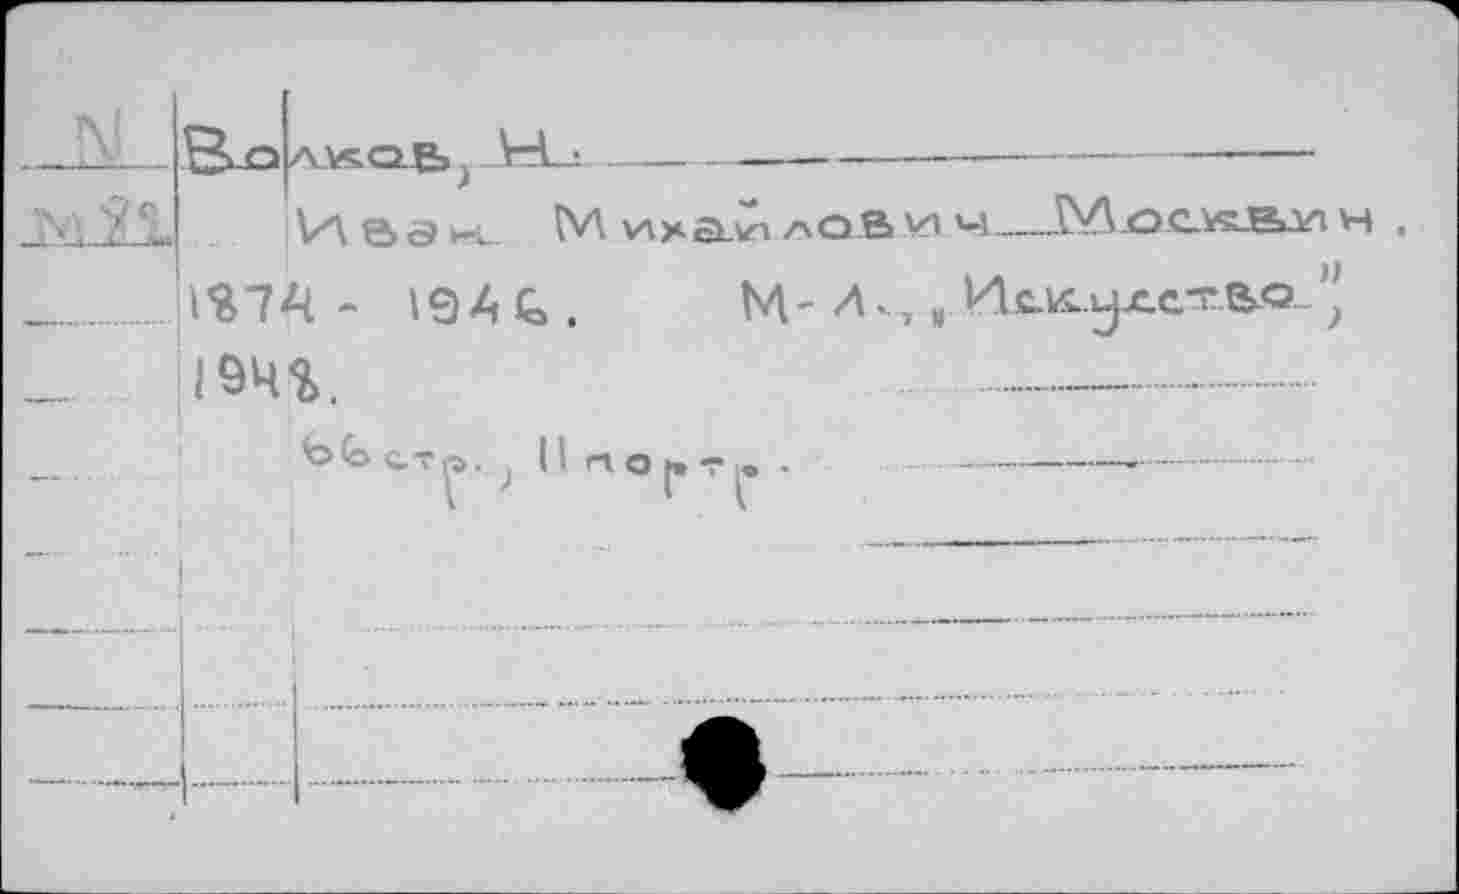 N Волков, Н.
М82 Иван Михайлович Москвин.
1874 - 1946. М-Л., „Искусство",
1948.
66 стр., 11 портр.